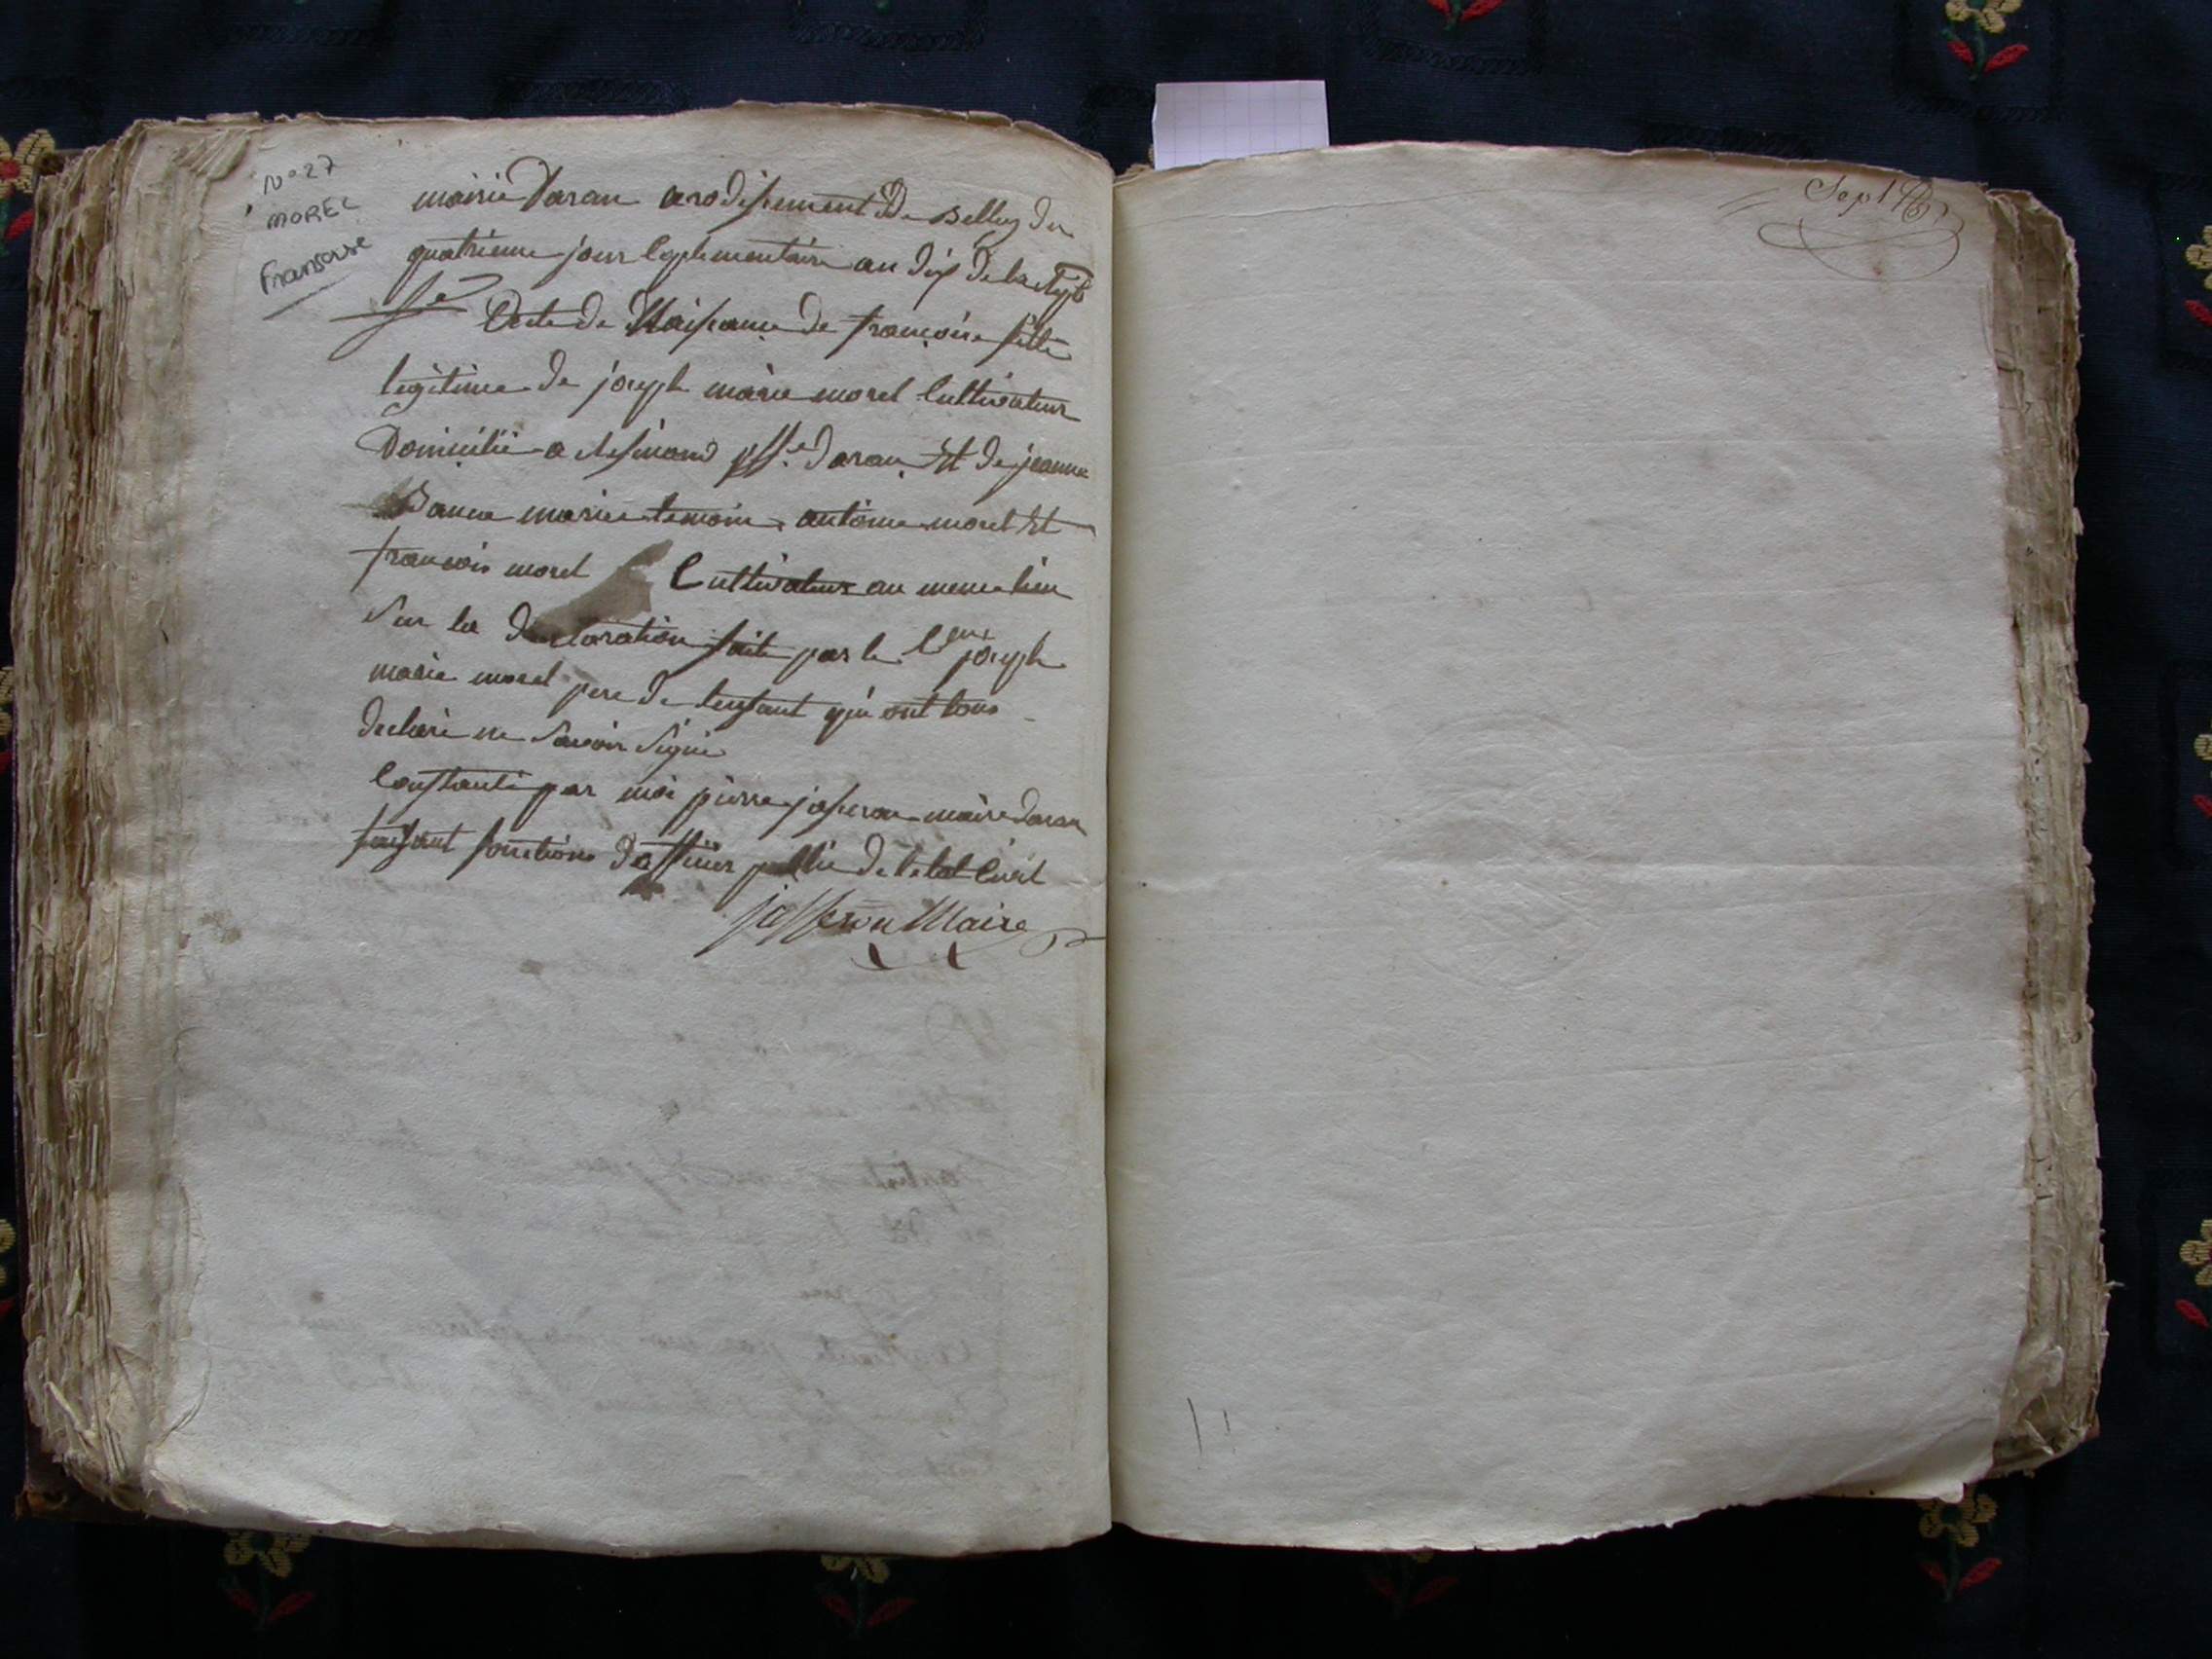 N° 27
MOREL
Fransoise
mairie Daran arodisement De Belley du
quatrieme jour Coplementaire an dix De la Rep
Acte de Naisance de françoise fille
legitime de joseph marie morel Cultivateur
Domicilié a psse daran Et de jeanne
marie temoin antoine morel Et
francois morel Cultivateur au meme lieu
Sur la declaration faite par le Cyen joseph
marie morel pere de lenfant qui ont tous
declaré ne Savoir Signé
Constanté par moi pierre josseron maire daran
faisant fonctions dofficier public de letat Civil
josseron Maire
Sept